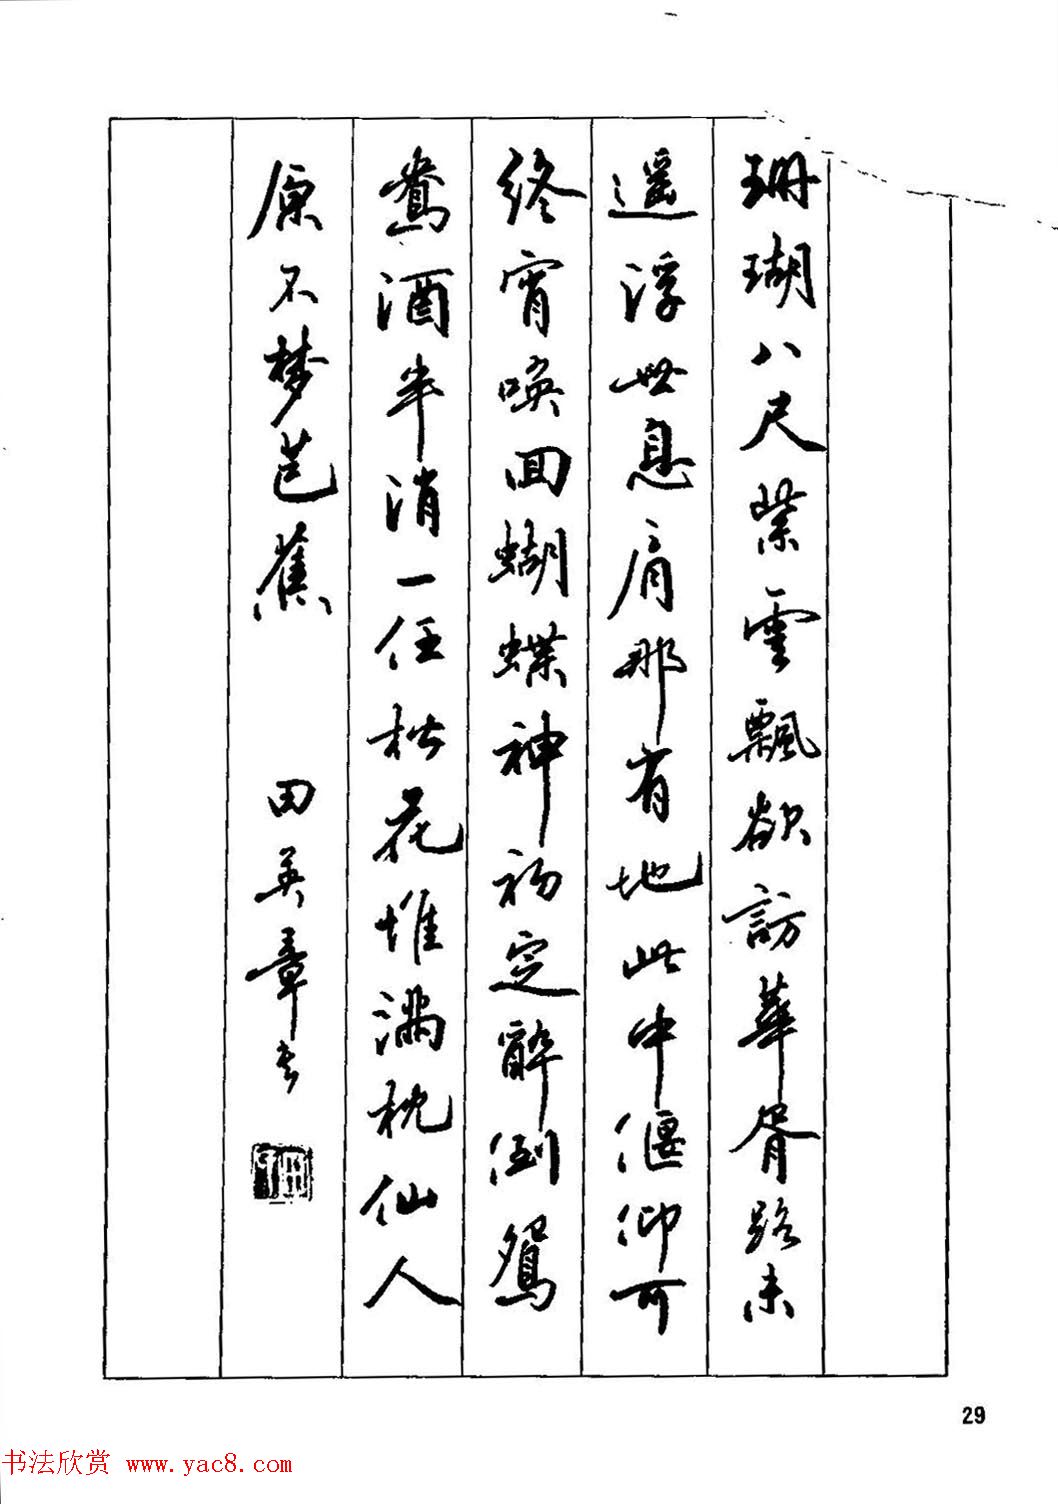 珊瑚八尺紫雲飄欲訪華胥路未
遥浮世息肩那有地此中偃仰可
終宵喚回蝴蝶神初定醉倒鴛
鴦酒半消一任松花堆滿枕仙人
原不梦芭蕉 田英章书
29
书法欣赏 www.yac8.com